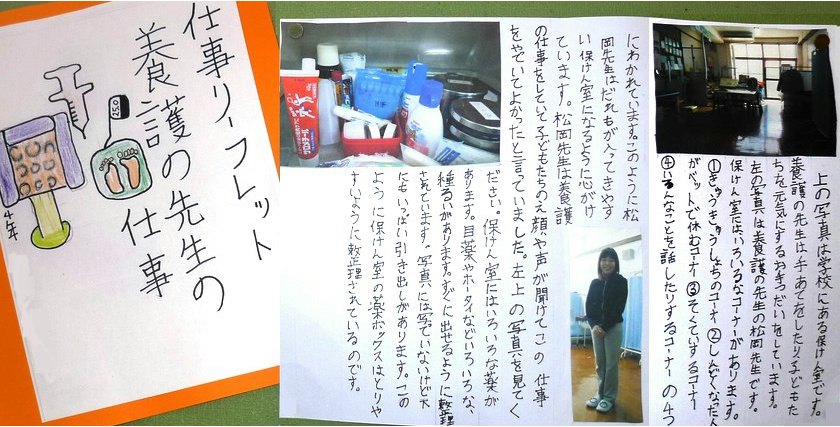 仕事リーフレット
養護の先生の
仕事
4年
25.0
上の写真は学校にある保けん室です。
養護の先生は手あてをしたり子どもた
ちを元気にするお手つだいをしています。
左の写真は養護の先生の松岡先生です。
保けん室にはいろいろなコーナーがあります。
①きゅうきゅうしょちのコーナー②しんどくなった人
がベットで休むコーナー③そくていするコーナー
④いろんなことを話したりするコーナーの4つ
にわかれています。このように松
岡先生はだれもが入ってきやす
い保けん室になるように心がけ
ています。松岡先生は養護
の仕事をしていて子どもたちのえ顔や声が聞けてこの仕事
をやっていてよかったと言っていました。左上の写真を見てく
ださい。保けん室にはいろいろな薬が
あります。目薬やホータイなどいろいろな、
種るいがあります。すぐに出せるように整理
されています。写真には写っていないけど
にもいっぱい引き出しがあります。この
ように保けん室の薬ボックスはとりや
すいように整理されているのです。